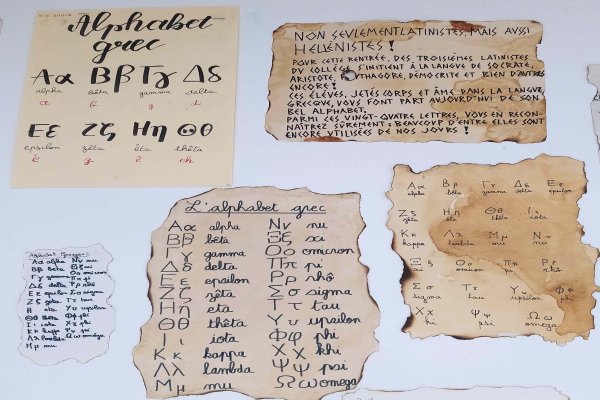 Alphabet
grec
Αα Ββ Γγ Δδ
alpha bêta gamma delta
a b g d
Εε Ζζ Ηη Θθ
epsilon zêta êta thêta
é z ê th
NON SEULEMENT LATINISTES, MAIS AUSSI
HELLÉNISTES !
POUR CETTE RENTRÉE, DES TROISIÈMES LATINISTES
DU COLLÈGE S'INITIENT À LA LANGUE DE SOCRATE,
ARISTOTE, PYTHAGORE, DÉMOCRITE ET BIEN D'AUTRES
ENCORE !
CES ÉLÈVES, JETÉS CORPS ET ÂME DANS LA LANGUE
GRECQUE, VOUS FONT PART AUJOURD'HUI DE SON
BEL ALPHABET.
PARMI CES VINGT-QUATRE LETTRES, VOUS EN RECON-
NAÎTREZ SÛREMENT : BEAUCOUP D'ENTRE ELLES SONT
ENCORE UTILISÉES DE NOS JOURS !
L'alphabet grec
Αα alpha Νν nu
Ββ bêta Ξξ xi
Γγ gamma Οο omicron
Δδ delta Ππ pi
Εε epsilon Ρρ rhô
Ζζ zêta Σσ sigma
Ηη eta Ττ tau
Θθ thêta Υυ upsilon
Ιι iota Φφ phi
Κκ kappa Χχ khi
Λλ lambda Ψψ psi
Μμ mu Ωω omega
Αα Ββ Γγ Δδ Εε
alpha beta gamma delta epsilon
Ζζ Ηη Θθ Ιι
zeta eta theta iota
Κκ Λλ Μμ Νν
kappa lambda mu nu
Ξξ Οο Ππ Ρρ
xi omicron pi rho
Σσ Ττ Υυ Φφ
sigma tau upsilon phi
Χχ Ψψ Ωω
khi psi omega
Alphabet Grecque
Αα alpha Νν nu
Ββ beta Ξξ xi
Γγ gamma Οο omicron
Δδ delta Ππ pi
Εε epsilon Σσ sigma
Ζζ zeta Ττ tau
Ηη eta Υυ upsilon
Θθ theta Φφ phi
Ιι iota Χχ khi
Κκ kappa Ψψ psi
Λλ lambda Ωω omega
Μμ mu